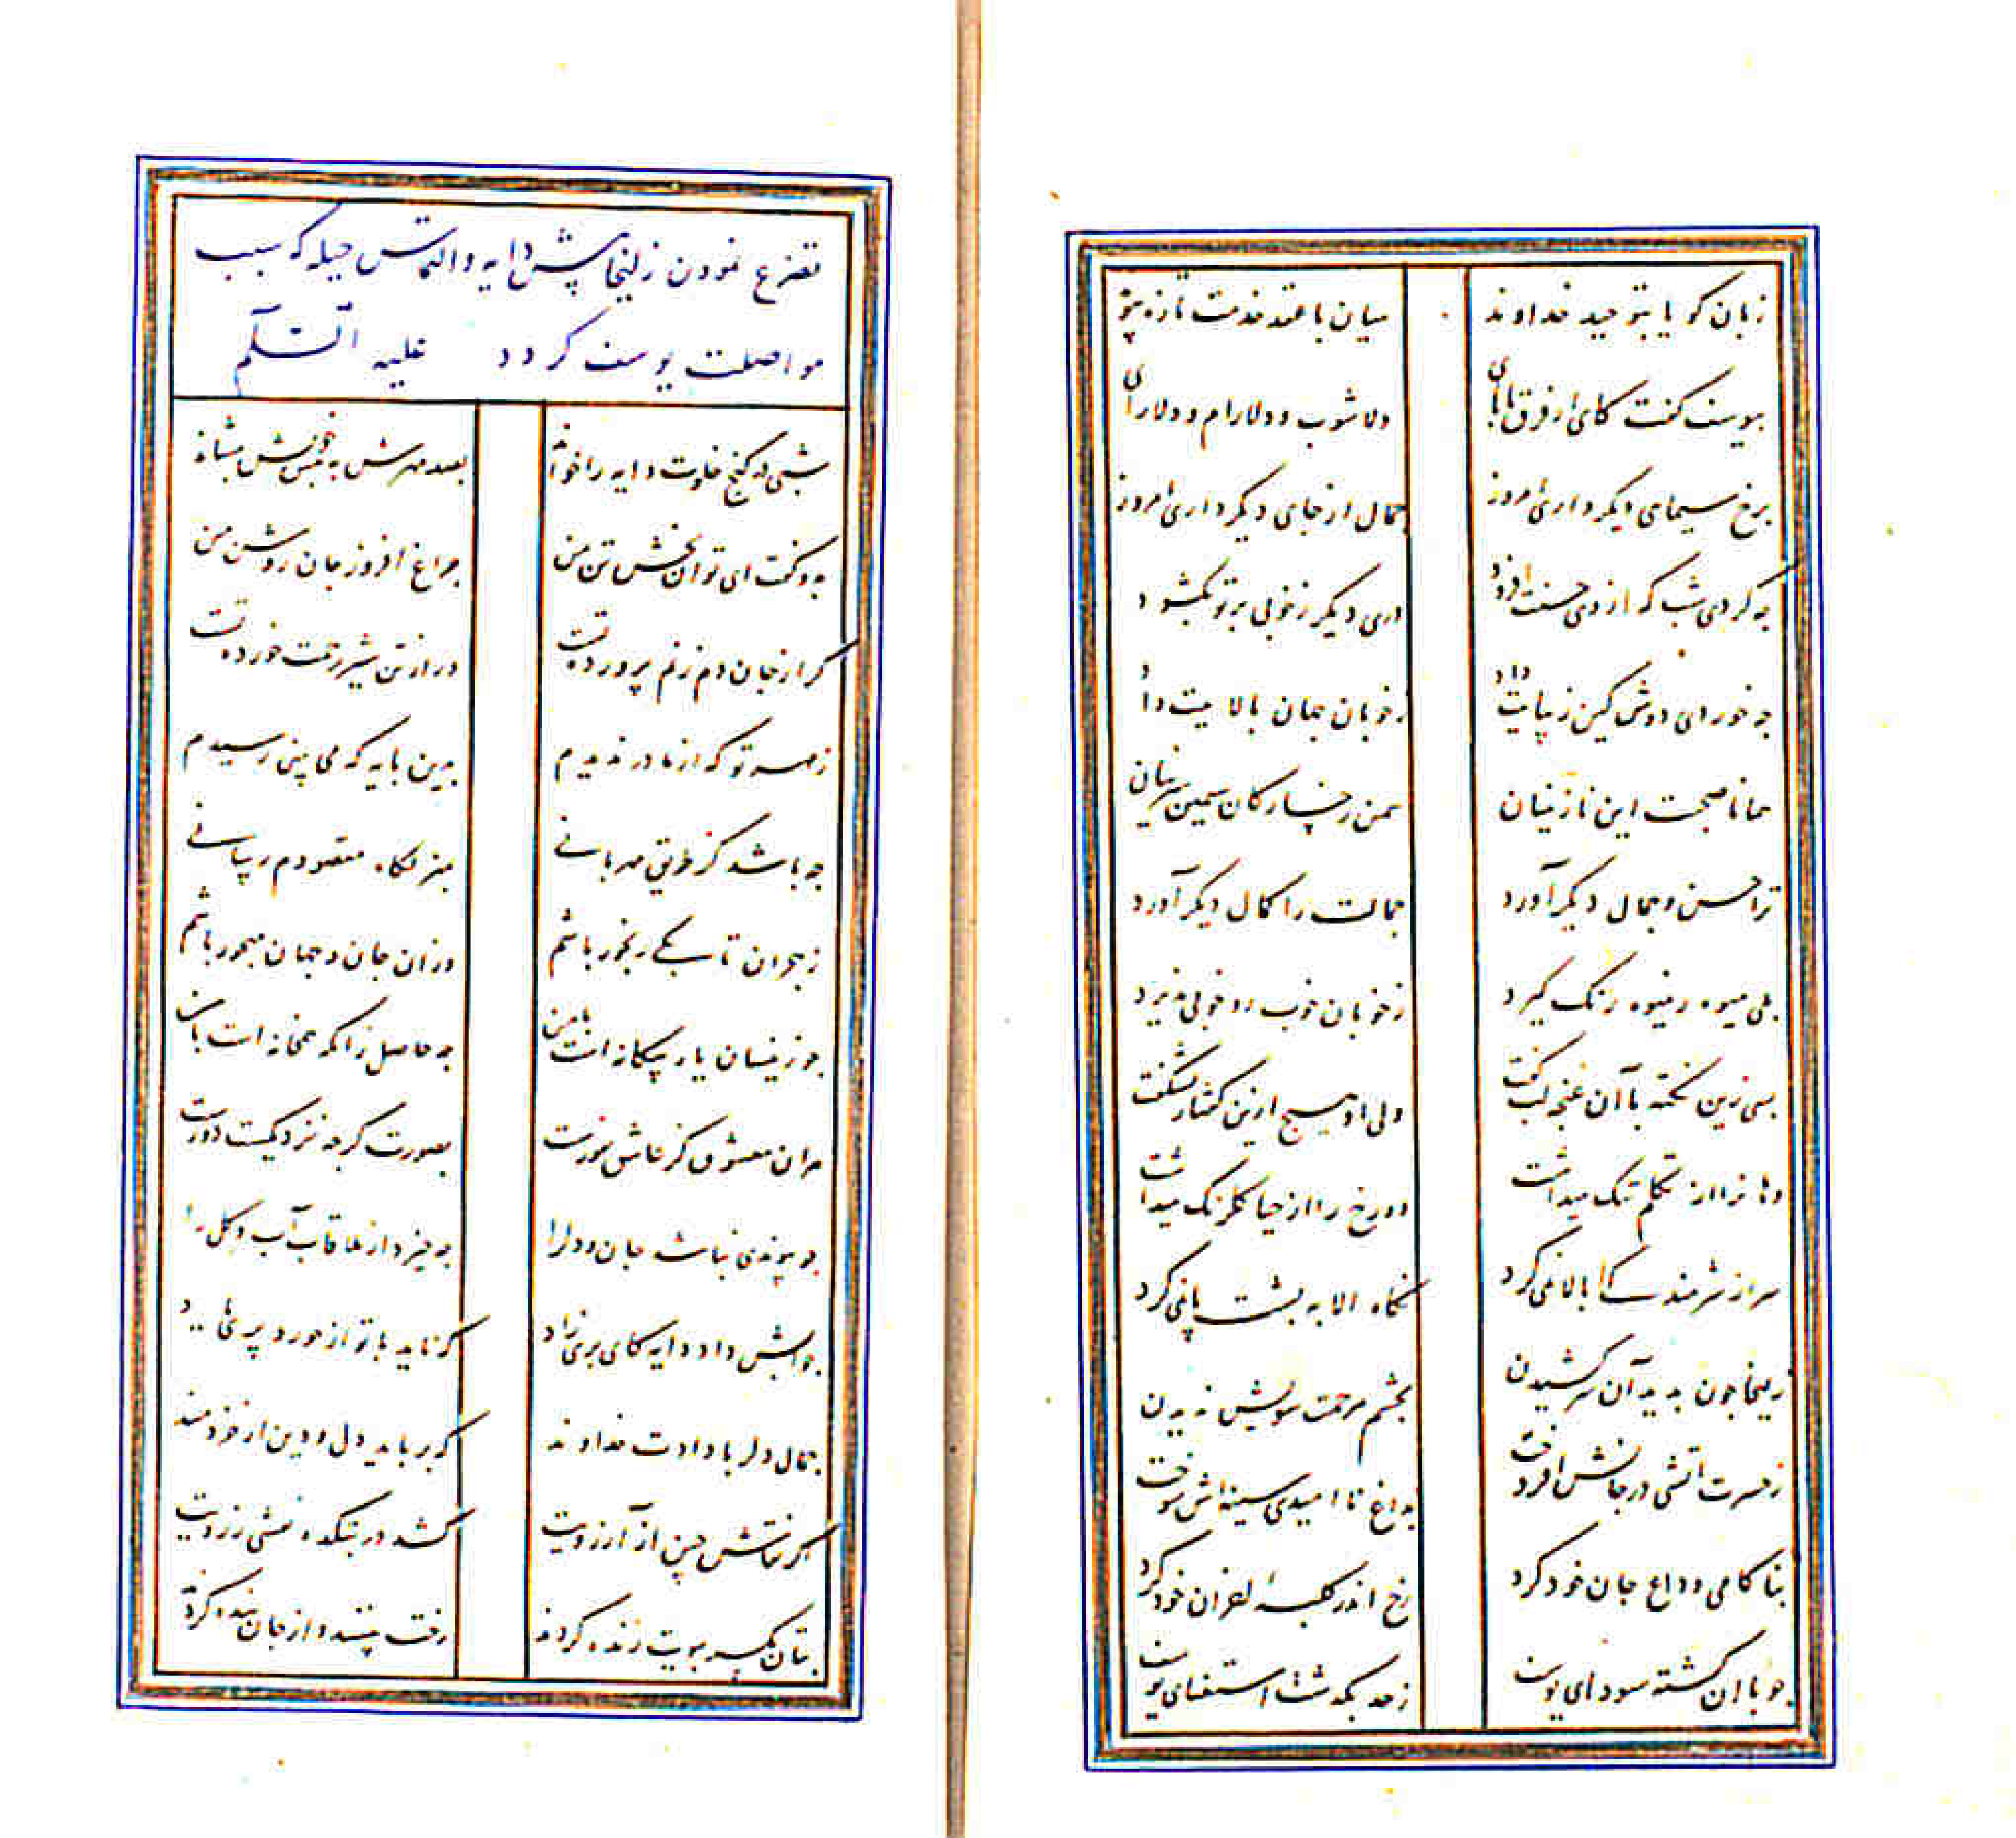 زبان کویا بتوحید خداوند
میان با عقد خدمت تازه پیو
بیوسف کفت کای از فرق تا پای
دلاشوب و دلارام و دلارای
برخ سیمای دیکر داری امروز
جمال از جای دیکر داری امروز
چه کردی شب که از وی حسنت افزود
دری دیکر ز خوبی بر تو بکشود
چه خوردی دوش کین زیبائیت داد
ز خوبان جهان بالائیت داد
همانا صحبت این نازنینان
سمن رخسارکان سیمین سرینان
ترا حسن و جمال دیکر آورد
جمالت را کمال دیکر آورد
بلی میوه ز میوه رنک کیرد
ز خوبان خوب رو خوبی پذیرد
بسی زین نکته با آن غنچه لب کفت
ولی او هیچ ازین کفتار نشکفت
دهانرا از تکلم تنک میداشت
دو رخ را از حیا کلرنک میداشت
سر از شرمندکی بالا نمی کرد
نکاه الا به پشت پا نمی کرد
زلیخا چون بدید آن سر کشیدن
بچشم مرحمت سویش ندیدن
ز حسرت آتشی در جانش افروخت
بداغ نا امیدی سینه اش سوخت
بناکامی وداع جان خود کرد
رخ اندر کلبهٔ احزان خود کرد
چو با ان کشته سودای یوسف
ز حد بکذشت استغنای یوسف
تضرع نمودن زلیخا پیش دایه و التماس حیله که سبب
مواصلت یوسف کردد علیه السلم
شبی در کنج خلوت دایه را خواند
بصد مهرش به پیش خویش بنشاند
بدو کفت ای توان بخش تن من
چراغ افروز جان روشن من
کر از جان دم زنم پرورده تست
ور از تن شیر رحمت خورده تست
ز مهر تو که از مادر ندیدم
بدین پایه که می بینی رسیدم
چه باشد کز طریق مهربانی
بمنزلکاه مقصودم رسانی
ز هجران تا بکی رنجور باشم
وزان جان و جهان مهجور باشم
چو زینسان یار بیکانه است با من
چه حاصل زانکه همخانه است با من
هر آن معشوق کز عاشق نفورست
بصورت کرچه نزدیکست دورست
چو پیوندی نباشد جان و دلرا
چه خیزد از ملاقات آب و کل را
جوابش داد دایه کای پری زاد
که ناید با تو از حور و پری یاد
جمال دلربا دادت خداوند
که برباید دل و دین از خردمند
اکر نقاش چین از آرزویت
کشد در بتکده نقشی ز رویت
بتان یکسر ببویت زنده کردند
رخت بینند و از جان بنده کردند